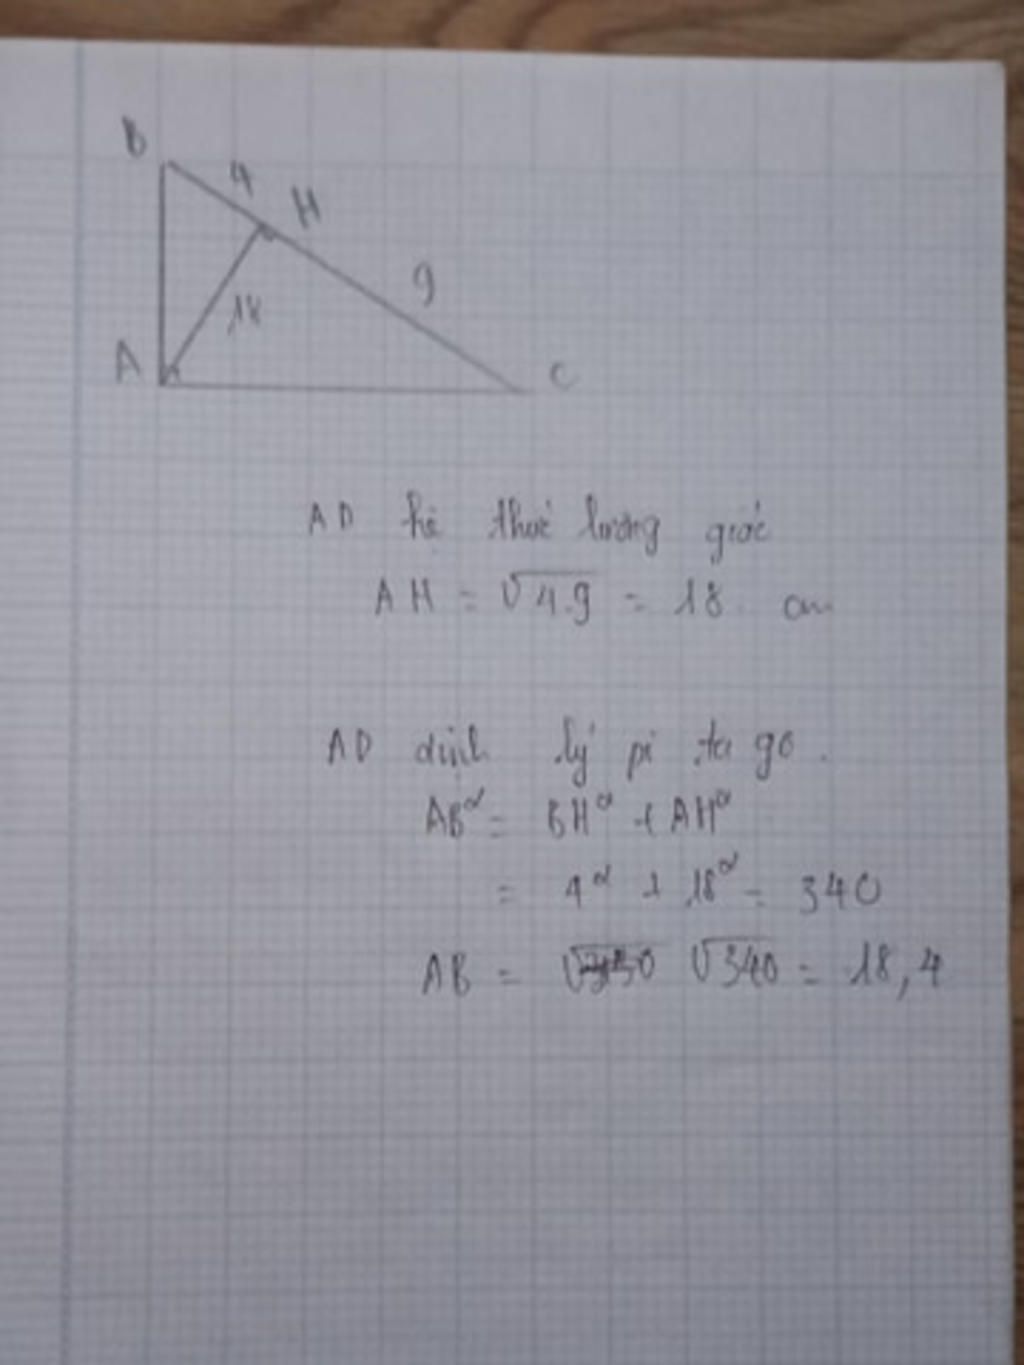 B
4
H
9
18
A
C
AD hệ thức lượng giác
AH = √4.9 = 18 cm
AD định lý pi ta go.
AB² = BH² + AH²
= 4² + 18² = 340
AB = √340 = 18,4